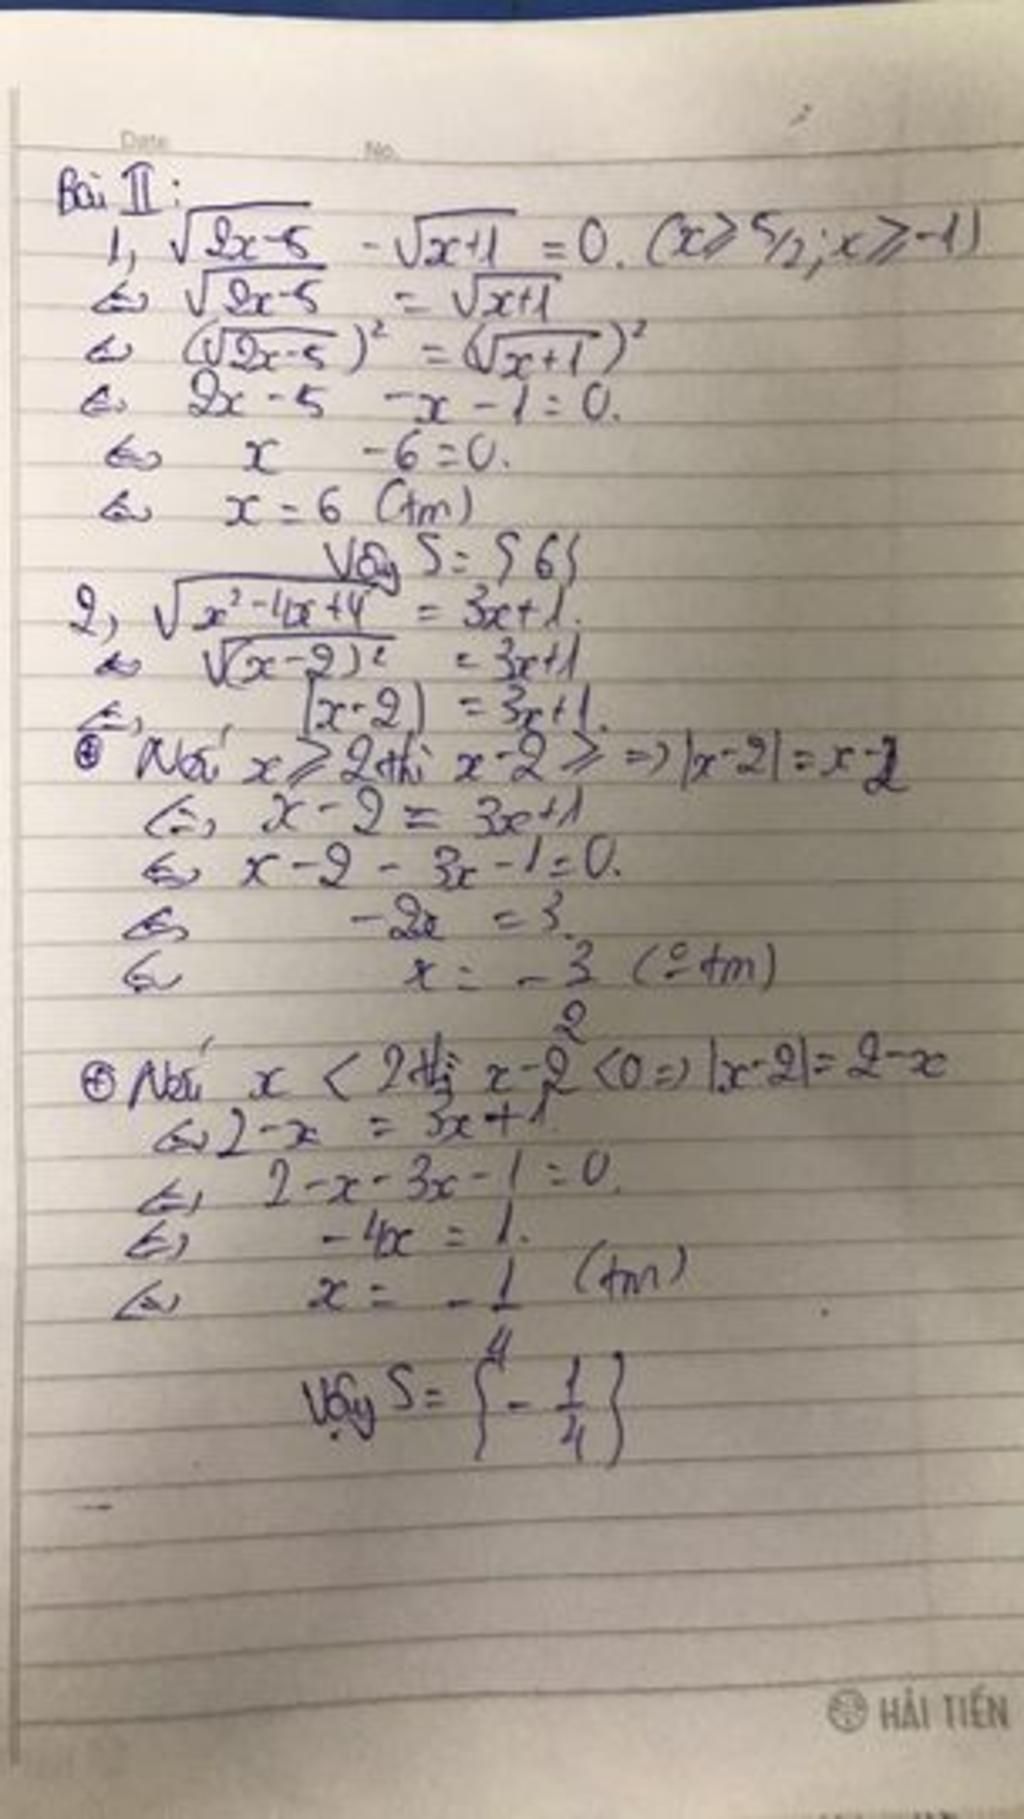 Date No.
Bài II:
1, √(2x-5) - √(x+1) = 0. (x ≥ 5/2; x ≥ -1)
⇔ √(2x-5) = √(x+1)
⇔ (√(2x-5))² = (√(x+1))²
⇔ 2x - 5 - x - 1 = 0.
⇔ x - 6 = 0.
⇔ x = 6 (tm)
Vậy S = {6}
2, √(x² - 4x + 4) = 3x + 1.
⇔ √((x-2)²) = 3x+1
⇔ |x-2| = 3x+1.
⊕ Nếu x ≥ 2 thì x-2 ≥ => |x-2| = x-2
⇔ x - 2 = 3x+1
⇔ x - 2 - 3x - 1 = 0.
⇔ -2x = 3.
⇔ x = -3/2 (tm)
⊕ Nếu x < 2 thì x-2 < 0 => |x-2| = 2-x
⇔ 2-x = 3x+1
⇔ 2 - x - 3x - 1 = 0.
⇔ -4x = 1.
⇔ x = -1/4 (tm)
Vậy S = {-1/4}
HẢI TIẾN